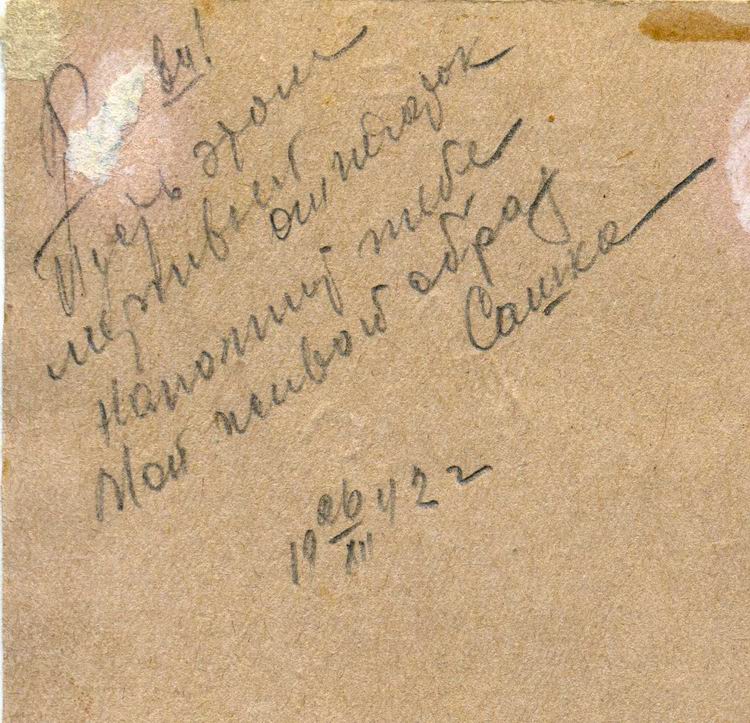 Пусть этот
мертвый отпечаток
напомнит тебе
Мой живой образ
Сашка
19 26/XII 42 г